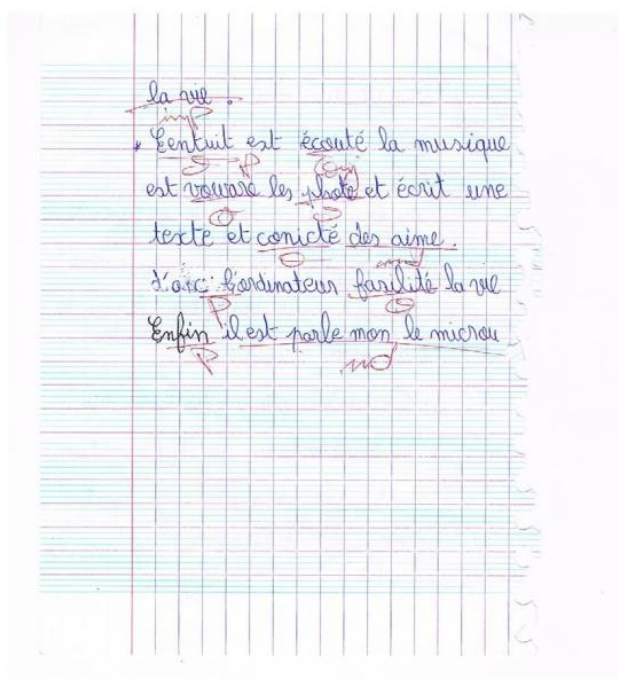 la vie.
imp
* Eentuit est écouté la musique
est vouare les photo et écrit une
texte et conicté des aime.
d'arc l'ordinateur fasilité la vie
P
Enfin il est parle mon le microu
P